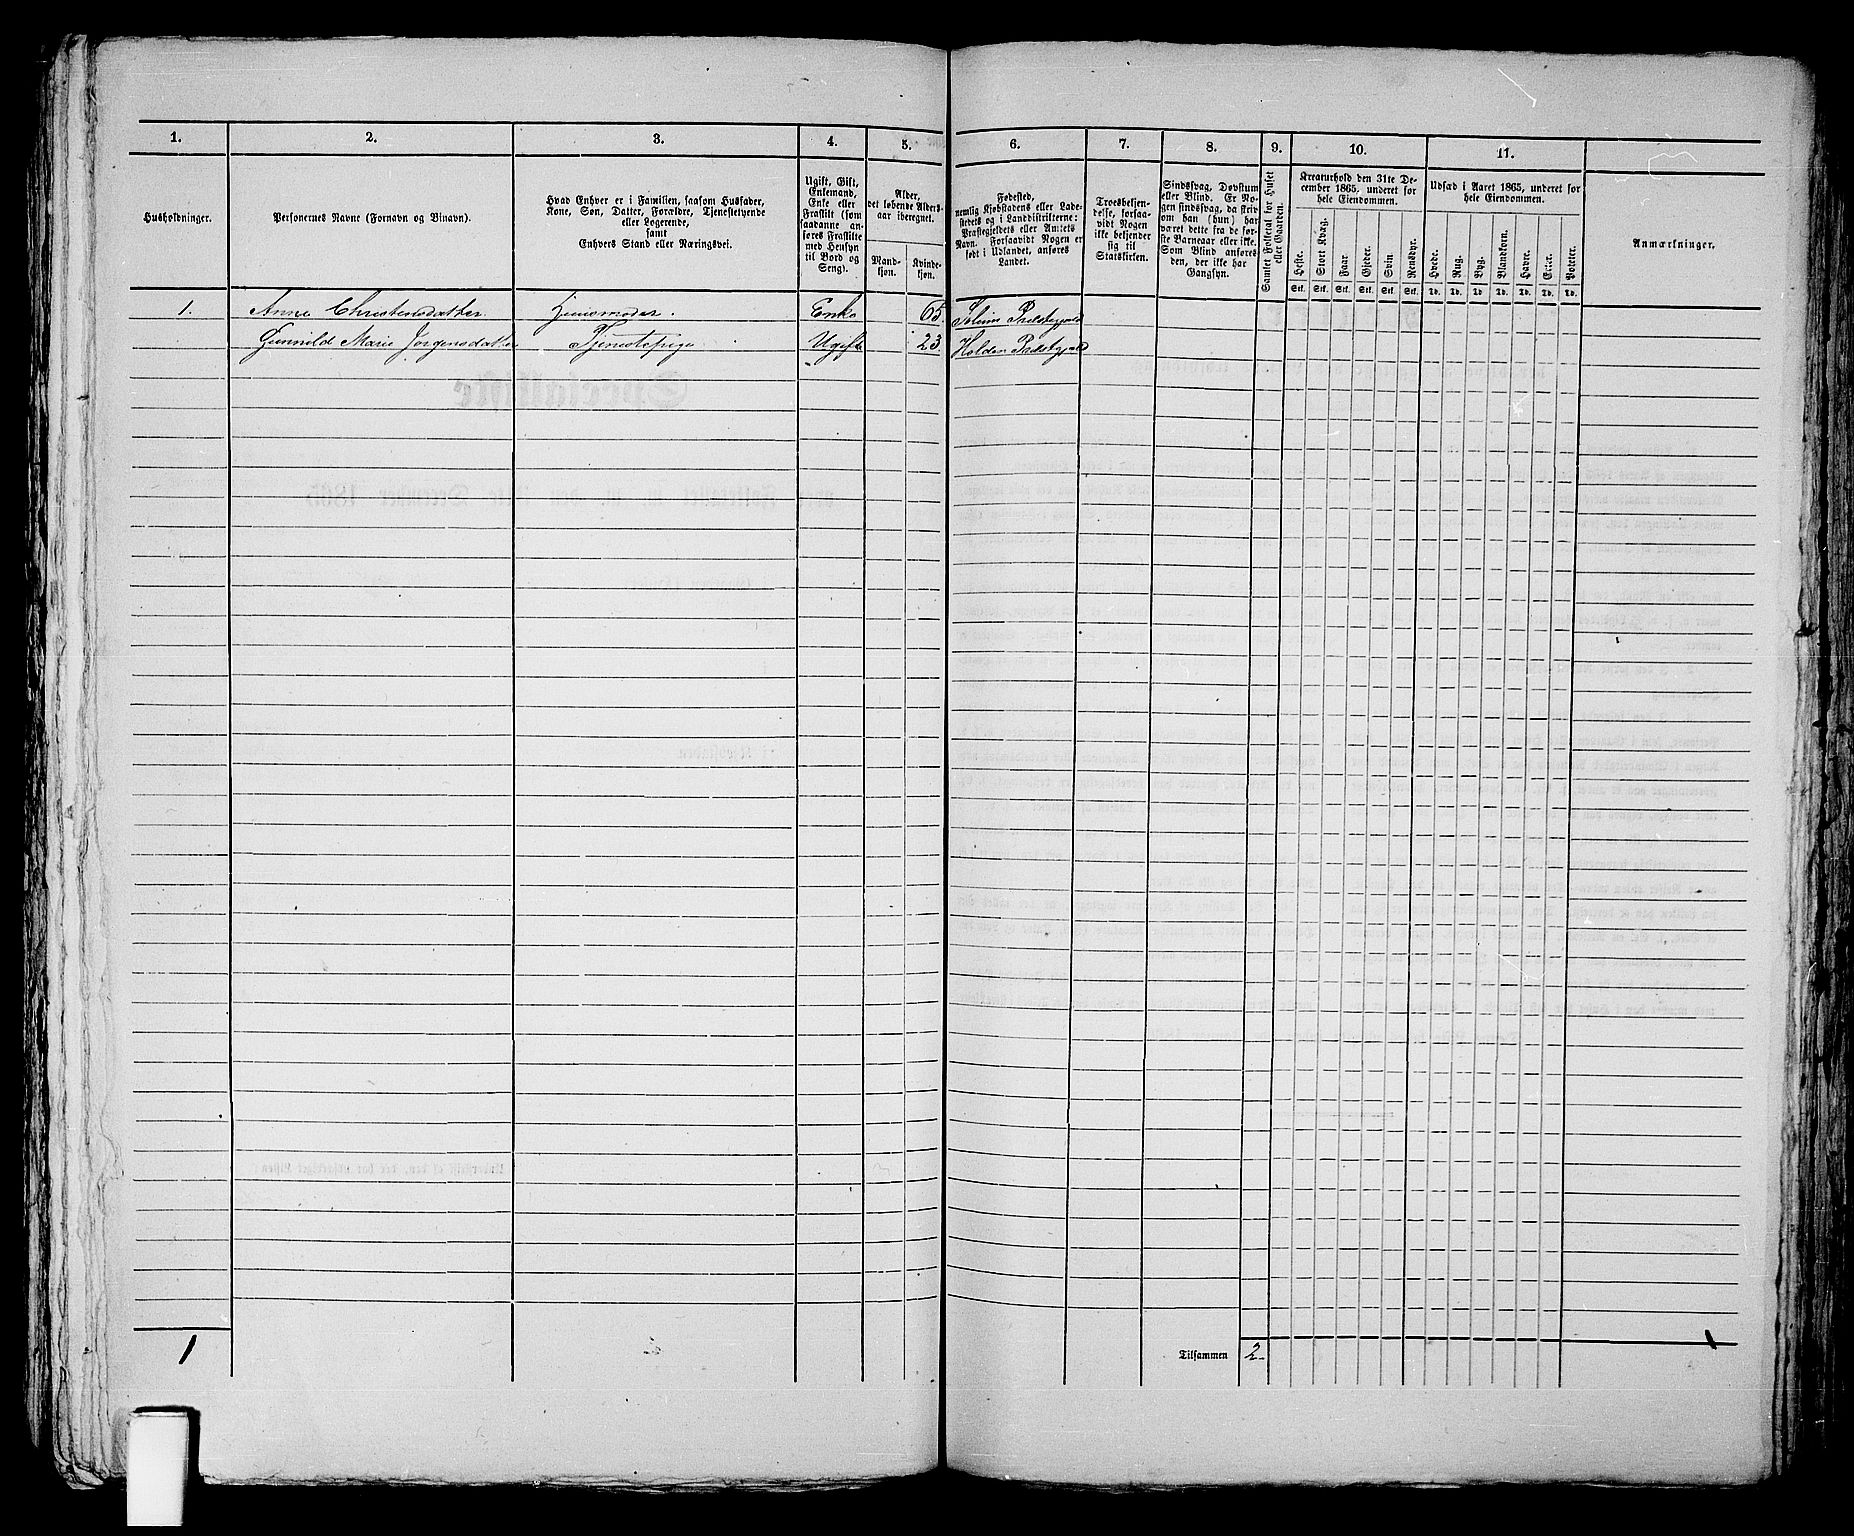 1. 2. 3. 4. 5. 6. 7. 8. 9. 10. 11.
Husholdninger.
Personernes Navne (Fornavn og Binavn).
Hvad Enhver er i Familien, saasom Husfader,
Kone, Søn, Datter, Forældre, Tjenestetyende
eller Logerende,
samt
Enhvers Stand eller Næringsvei.
Ugift, Gift,
Enkemand,
Enke eller
Fraskilt (som
saadanne an-
føres Fraskilte
med Hensyn
til Bord og
Seng).
Alder,
det løbende Alders-
aar iberegnet.
Mand-
kjøn.
Kvinde-
kjøn.
Fødested,
nemlig Kjøbstadens eller Lade-
stedets og i Landdistrikterne:
Præstegjeldets eller Amtets
Navn. Forsaavidt Nogen er
født i Udlandet, anføres
Landet.
Troesbekjen-
delse, forsaa-
vidt Nogen
ikke bekjender
sig til
Statskirken.
Sindssvag, Døvstum
eller Blind. Er No-
gen sindssvag, da skriv
om han (hun) har
været dette fra de før-
ste Barneaar eller ikke.
Som Blind anføres
den, der ikke har
Gangsyn.
Samlet Folketal for Huset
eller Gaarden.
Kreaturhold den 31te De-
cember 1865, underet for
hele Eiendommen.
Heste. Stort Kvæg. Faar. Gjeder. Svin. Rensdyr.
Stk. Stk. Stk. Stk. Stk. Stk.
Udsæd i Aaret 1865, underet for
hele Eiendommen.
Hvede. Rug. Byg. Blandkorn. Havre. Erter. Poteter.
Td. Td. Td. Td. Td. Td. Td.
Anmærkninger.
1. Anne Christensdatter Huusmoder. Enke 65. Solum Præstegjeld
Gunnild Marie Jørgensdatter Tjenestepige Ugift 23 Holden Præstegjeld
1 2 Tilsammen 2